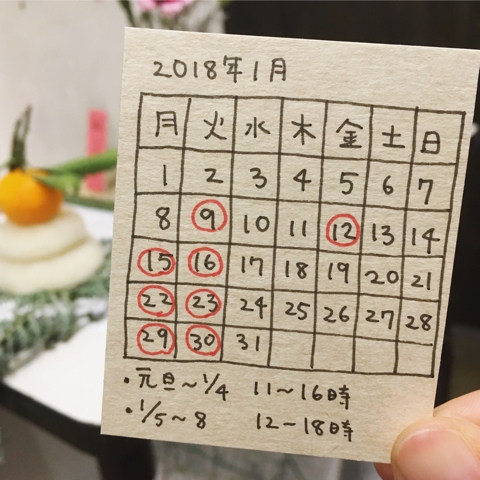 2018年1月
月 火 水 木 金 土 日
1 2 3 4 5 6 7
8 9 10 11 12 13 14
15 16 17 18 19 20 21
22 23 24 25 26 27 28
29 30 31
・元旦～1/4 11～16時
・1/5～8 12～18時